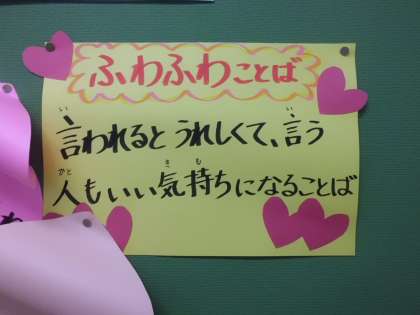 ふわふわことば
言われるとうれしくて、言う
人もいい気持ちになることば